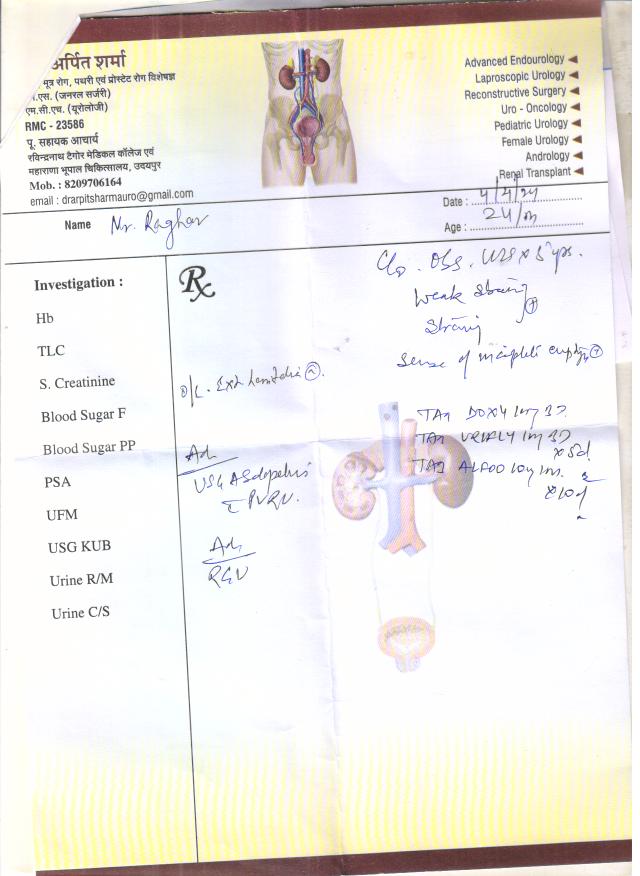 अर्पित शर्मा
मूत्र रोग, पथरी एवं प्रोस्टेट रोग विशेषज्ञ
एम.एस. (जनरल सर्जरी)
एम.सी.एच. (यूरोलोजी)
RMC - 23586
पू. सहायक आचार्य
रविन्द्रनाथ टैगोर मेडिकल कॉलेज एवं
महाराणा भूपाल चिकित्सालय, उदयपुर
Mob. : 8209706164
email : drarpitsharmauro@gmail.com
Advanced Endourology
Laproscopic Urology
Reconstructive Surgery
Uro - Oncology
Pediatric Urology
Female Urology
Andrology
Renal Transplant
Date : 4/4/24
Age : 24/m
Name Mr. Raghav
Investigation :
Hb
TLC
S. Creatinine
Blood Sugar F
Blood Sugar PP
PSA
UFM
USG KUB
Urine R/M
Urine C/S
Rx
C/o. Obs.
Weak
Sense of
O/E. Ext
Adv
USG
PVRV.
Adv
RGU
TAB
TAB
x 5d
TAB
x 10d